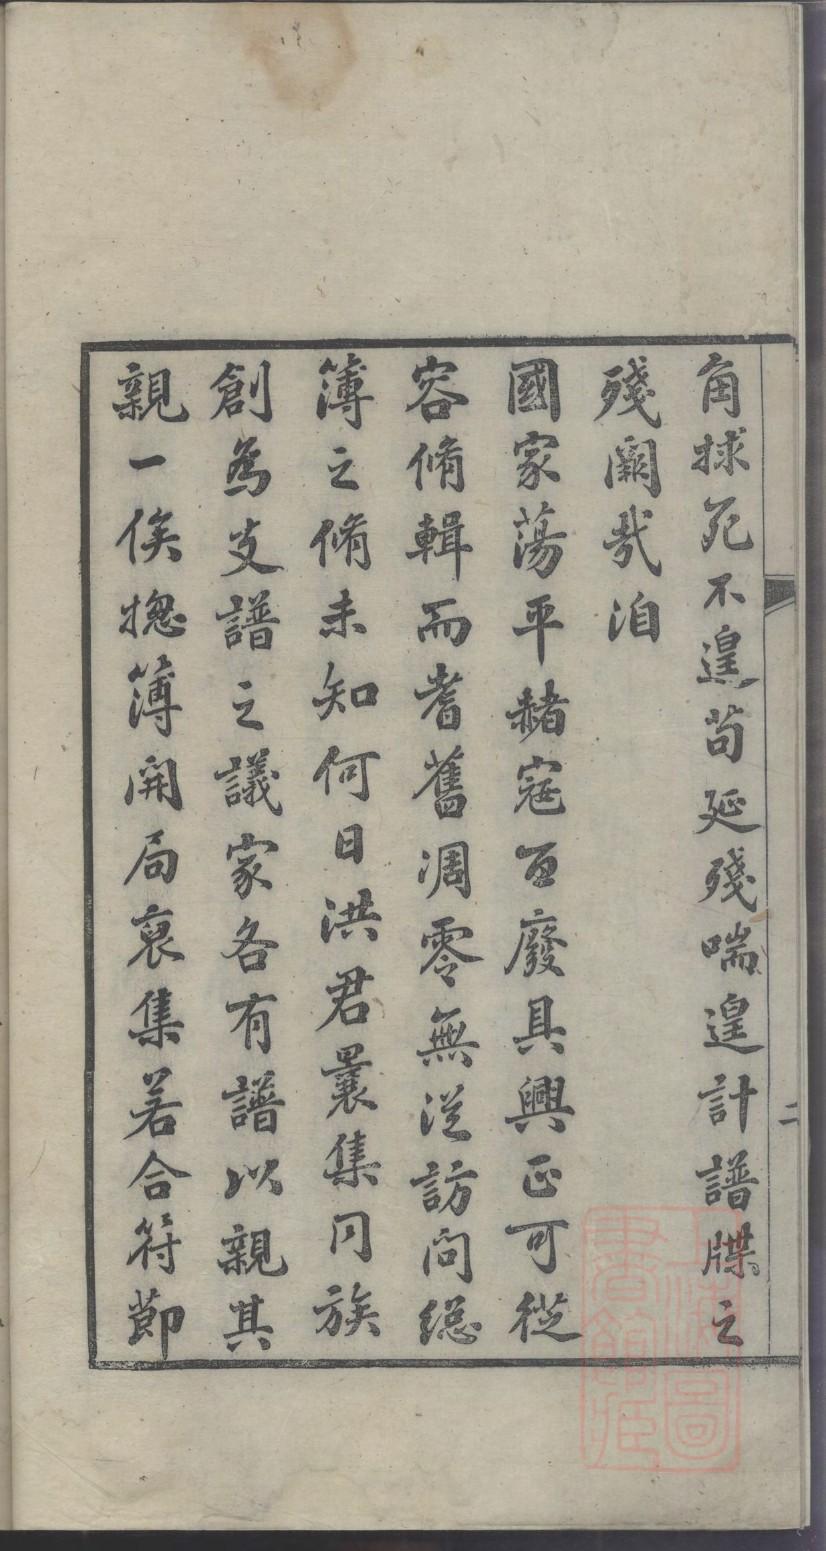 角捄死不遑苟延殘喘遑計譜牒之
殘闕哉洎
國家蕩平赭寇百廢具興正可從
容脩輯而耆舊凋零無從訪問總
簿之脩未知何日洪君曩集同族
創爲支譜之議家各有譜以親其
親一俟捴簿開局裒集若合符節
二
上海圖
書館藏